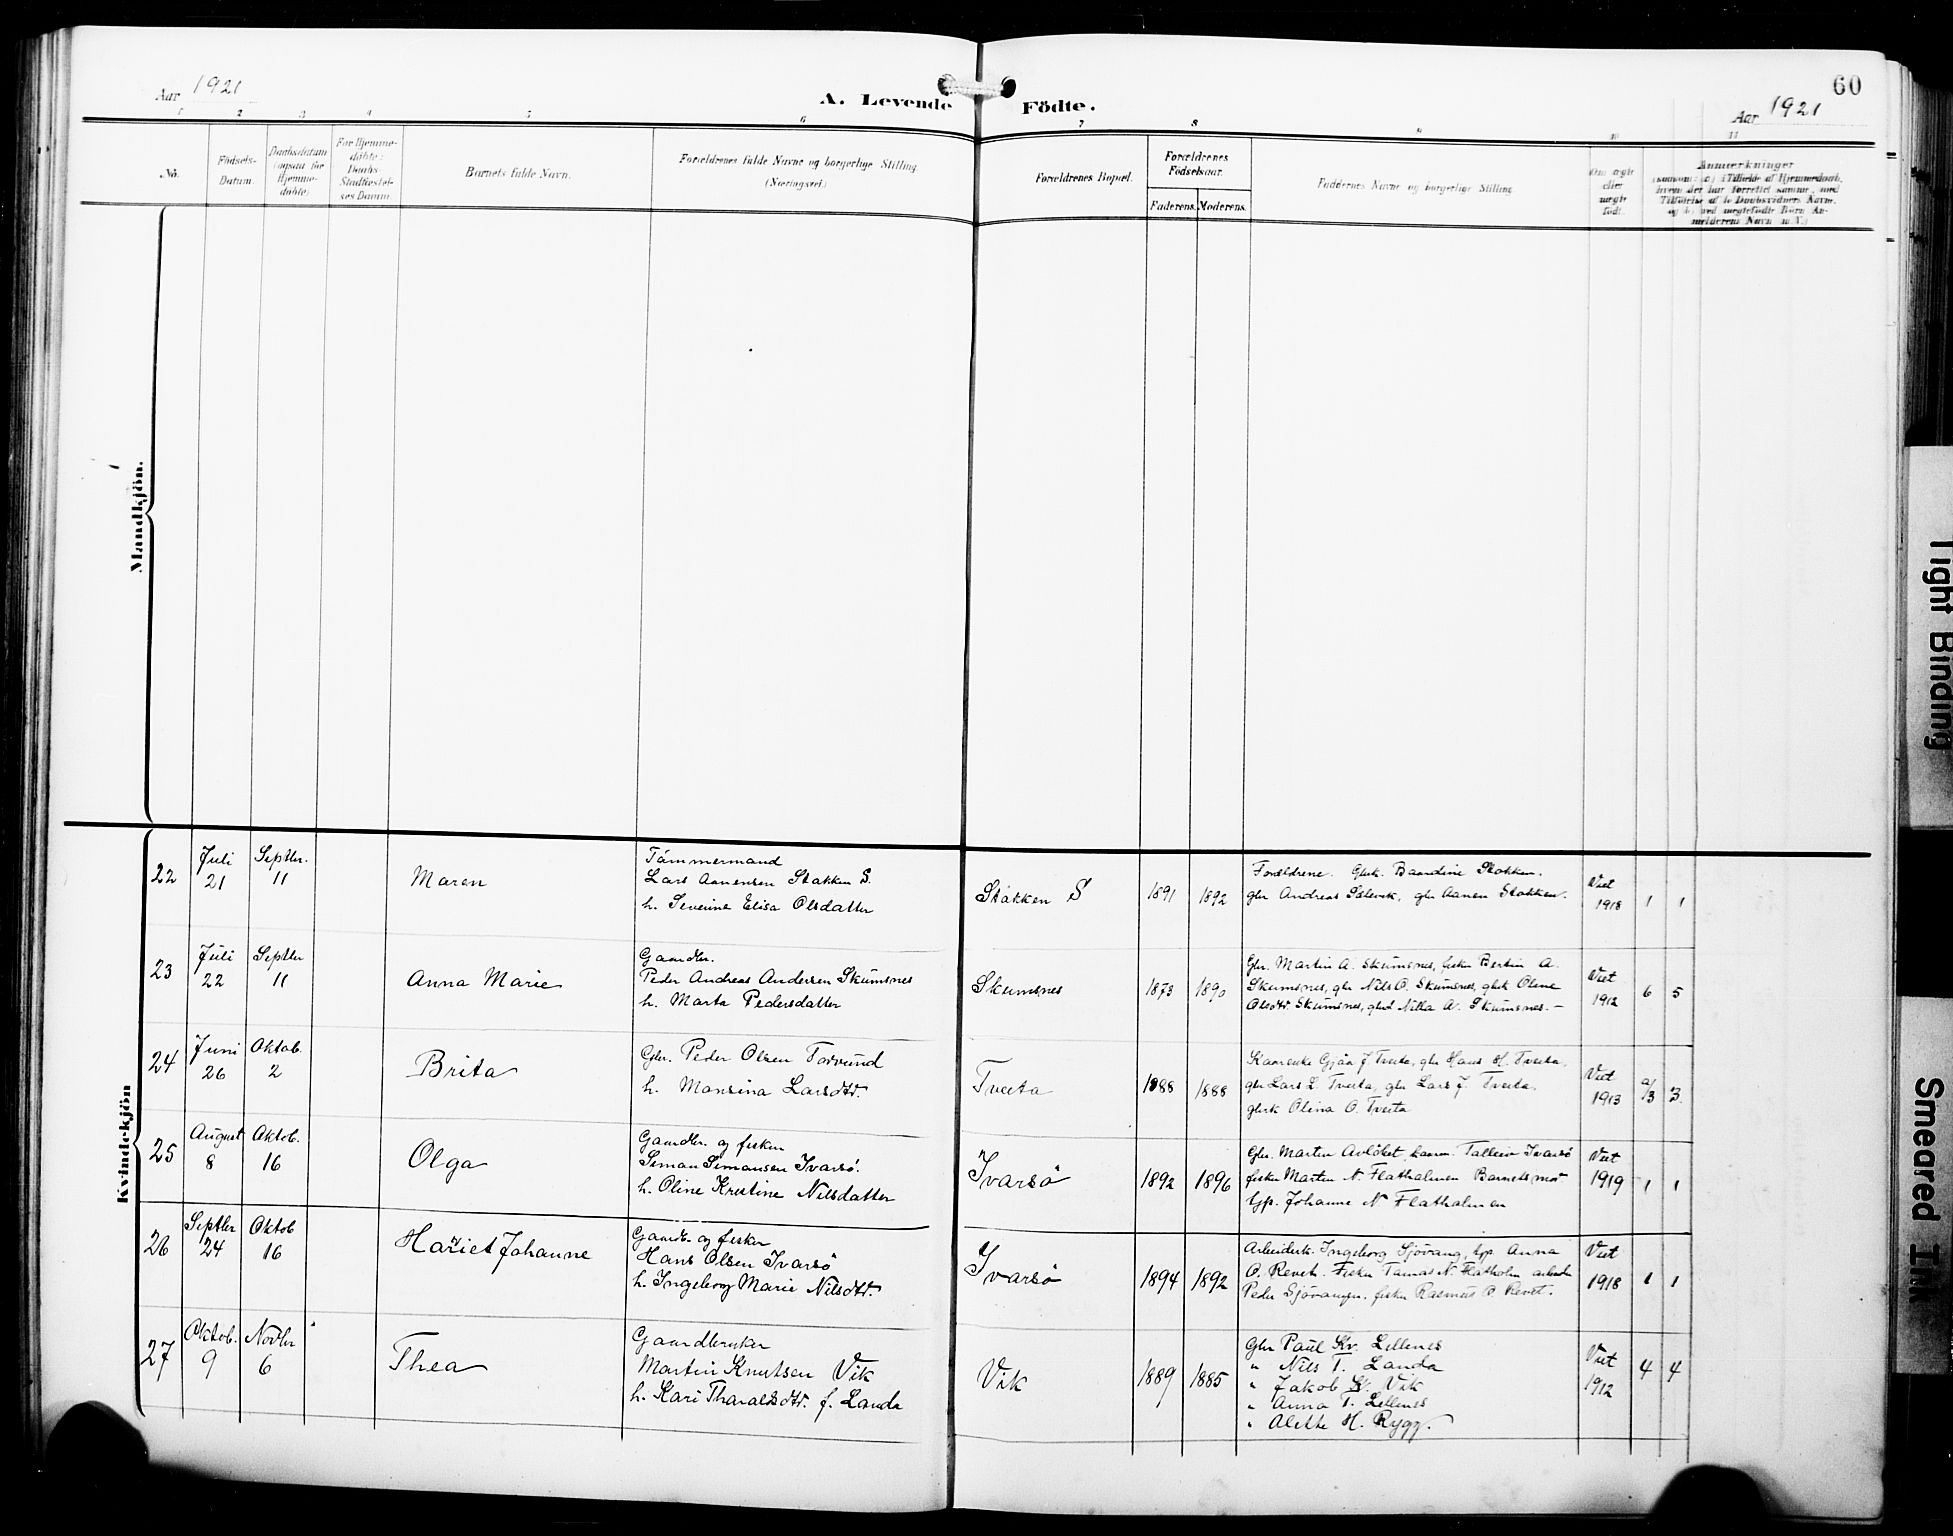 60
Aar 1921
A. Levende Födte.
Aar 1921
1 2 3 4 5 6 7 8 9 10 11
No.
Födsels-
Datum.
Daabsdatum
(ogsaa for
Hjemme-
döbte)
For Hjemme-
döbte:
Daabs-
Stadfæstel-
ses Datum
Barnets fulde Navn.
Forældrenes fulde Navne og borgerlige Stilling
(Næringsvei.)
Forældrenes Bopæl.
Forældrenes
Födselsaar.
Faderens. Moderens.
Faddernes Navne og borgerlige Stilling
Om ægte
eller
uægte
født.
Anmerkninger
Mandkjön.
Kvindekjön
22
Juli
21
Septbr.
11
Maren
Tömmermand
Lars Aanensen Stokken S.
h. Severine Elisa Olsdatter
Stokken S
1891
1892
Forældrene. Gbrk. Baardine Stokken.
gbr Andreas Sælevik, gbr Aanen Stokken.
Viet
1918
1
1
23
Juli
22
Septbr
11
Anna Marie
Gaardbr.
Peder Andreas Andersen Skumsnes
h. Marta Pedersdatter
Skumsnes
1873
1890
Gbr. Martin A. Skumsnes, fisker Bertin A.
Skumsnes, gbr Nils O. Skumsnes, gbrk Oline
Olsdtr. Skumsnes, Nilla A. Skumsnes.-
Viet
1912
6
5
24
Juni
26
Oktob.
2
Brita
Gbr. Peder Olsen Torsund
h. Mansina Larsdtr.
Tveita
1888
1888
Kaarenke Gjöa J. Tveita, gbr Hans H. Tveita,
gbr Lars L. Tveita, gbr Lars J. Tveita.
gbrk Olina O. Tveita
Viet
1913
a/3
3.
25
August
8
Oktob.
16
Olga
Gaardbr. og fisker
Simon Simonsen Ivarsö.
h. Oline Kristine Nilsdatter
Ivarsö
1892
1896
Gbr. Martin Avlöket, Talleiv Ivarsö
fisker Marten N. Flatholmen Barnets mor
Johanne N Flatholmen
Viet
1919
1
1
26
Septbr
24
Oktob
16
Hariet Johanne
Gaardb. og fisker
Hans Olsen Ivarsö
h. Ingeborg Marie Nilsdtr.
Ivarsö
1894
1892
Arbeiderk. Ingeborg Sjövang, Anna
O. Revet. Fisker Tomas N. Flatholm arbeider
Peder Sjövangen, fisker Rasmus O. Revet.
Viet
1918
1
1
27
Oktob.
9
Novbr
6
Thea
Gaardbruker
Martin Knutsen Vik
h. Kari Tharaldsdtr. f. Landa
Vik
1889
1885
Gbr Paul Kv. Lillenes
" Nils T. Landa
" Jakob W. Vik
" Anna T. Lillenes
" Alette H. Rygg.
Viet
1912
4
4
Tight Binding
Smeared Ink